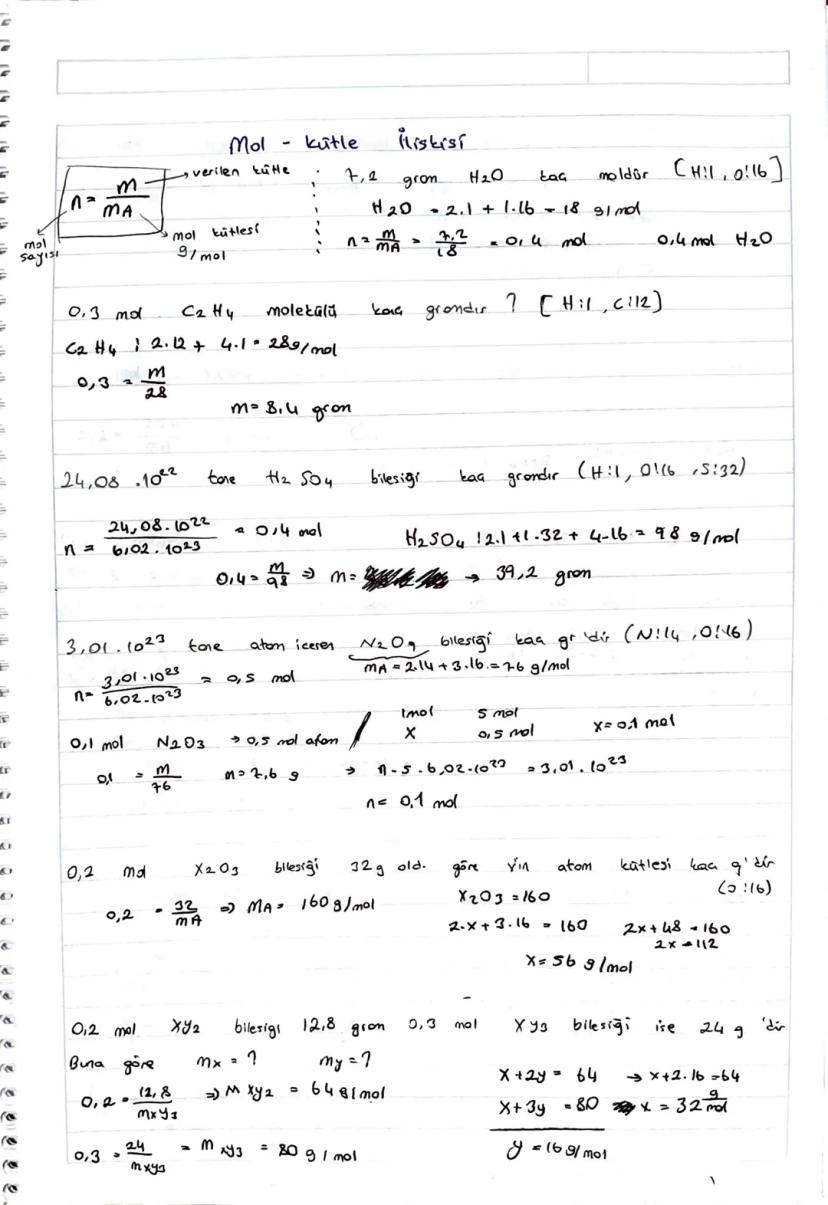 Mol - kütle İlişkisi
n = m / MA → verilen kütle
mol sayısı
mol kütlesi g/mol
7,2 gron H2O kaç moldür [H:1, O:16]
H2O = 2.1 + 1.16 = 18 g/mol
n = m/MA = 7,2/18 = 0,4 mol 0,4 mol H2O
0,3 mol C2H4 molekülü kaç grondır ? [H:1, C:12]
C2H4 : 2.12 + 4.1 = 28g/mol
0,3 = m/28
m = 8,4 gron
24,08 .10²² tone H2SO4 bileşiği kaç grondır (H:1, O:16, S:32)
n = 24,08.10²² / 6,02.10²³ = 0,4 mol
H2SO4 : 2.1 + 1.32 + 4-16 = 98 g/mol
0,4 = m/98 ⇒ m = → 39,2 gron
3,01.10²³ tone atom iceren N2O3 bileşiği kaç gr'dir (N:14, O:16)
MA = 2.14 + 3.16 = 76 g/mol
n = 3,01.10²³ / 6,02.10²³ = 0,5 mol
1mol 5 mol
0,1 mol N2O3 → 0,5 mol atom / X 0,5 mol X = 0,1 mol
0,1 = m/76 m = 7,6 g → n.5.6,02.10²³ = 3,01.10²³
n = 0,1 mol
0,2 mol X2O3 bileşiği 32g old. göre X'in atom kütlesi kaç g'dir
(O:16)
0,2 = 32/MA ⇒ MA = 160g/mol
X2O3 = 160
2.x + 3.16 = 160 2x + 48 = 160
2x = 112
X = 56 g/mol
0,2 mol XY2 bileşigi 12,8 gron 0,3 mol XY3 bileşiği ise 24 g 'dir
Buna göre mx = ? my = ?
0,2 = 12,8/mxy3 ⇒ M XY2 = 64g/mol
X + 2y = 64 → x + 2.16 = 64
X + 3y = 80 x = 32 g/mol
0,3 = 24/mxy3 = M XY3 = 80 g/mol
y = 16g/mol